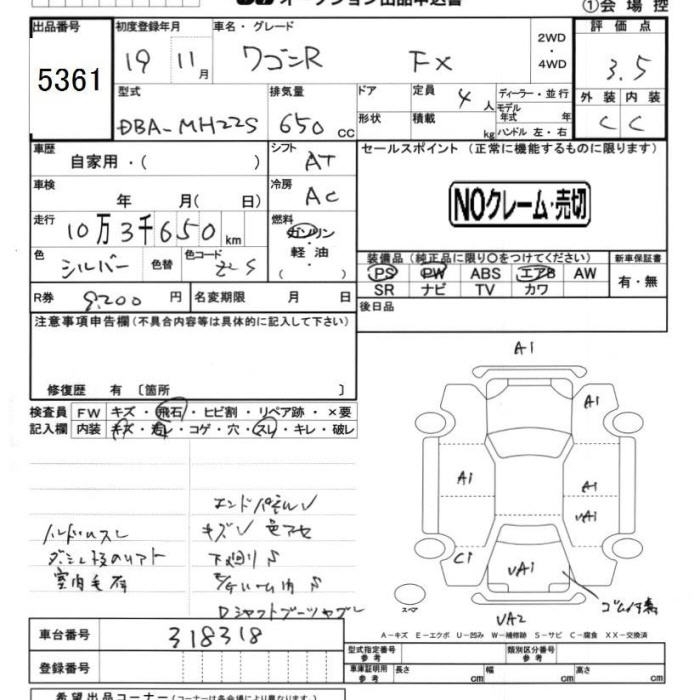 オークション出品申込書
①会場控
出品番号 初度登録年月 車名・グレード 評価点
5361 19 11月 ワゴンR FX 2WD・4WD 3.5
型式 排気量 ドア 定員 4人 ディーラー・並行 外装 内装
DBA-MH22S 650cc 形状 積載 kg モデル年式 年 C C
ハンドル 左・右
車歴 シフト セールスポイント(正常に機能するものに限ります)
自家用・( ) AT
車検 冷房
年 月( 日) AC NOクレーム・売切
走行 燃料
10万3千650km ガソリン・軽油
色 色コード 装備品(純正品に限り○をつけてください) 新車保証書
シルバー 色替 Z2S PS PW ABS エアB AW 有・無
SR ナビ TV カワ
R券 9,200円 名変期限 月 日 後日品
注意事項申告欄(不具合内容等は具体的に記入して下さい)
A1
A1
修復歴 有〔箇所 〕
検査員 FW キズ・飛石・ヒビ割・リペア跡・×要
記入欄 内装 キズ・汚レ・コゲ・穴・スレ・キレ・破レ
A1 A1
UA1
エンドパネルU
ハンドルスレ キズU 色アセ
下廻りS
C1 UA1
Dシャフトブーツヤブレ
スペア
UA2
A-キズ E-エクボ U-凹み W-補修跡 S-サビ C-腐食 XX-交換済
車台番号 318318 型式指定番号 参考 類別区分番号 参考
登録番号 車庫証明用 参考 長さ cm 幅 cm 高さ cm
希望出品コーナー(コーナーは各会場により異なります)